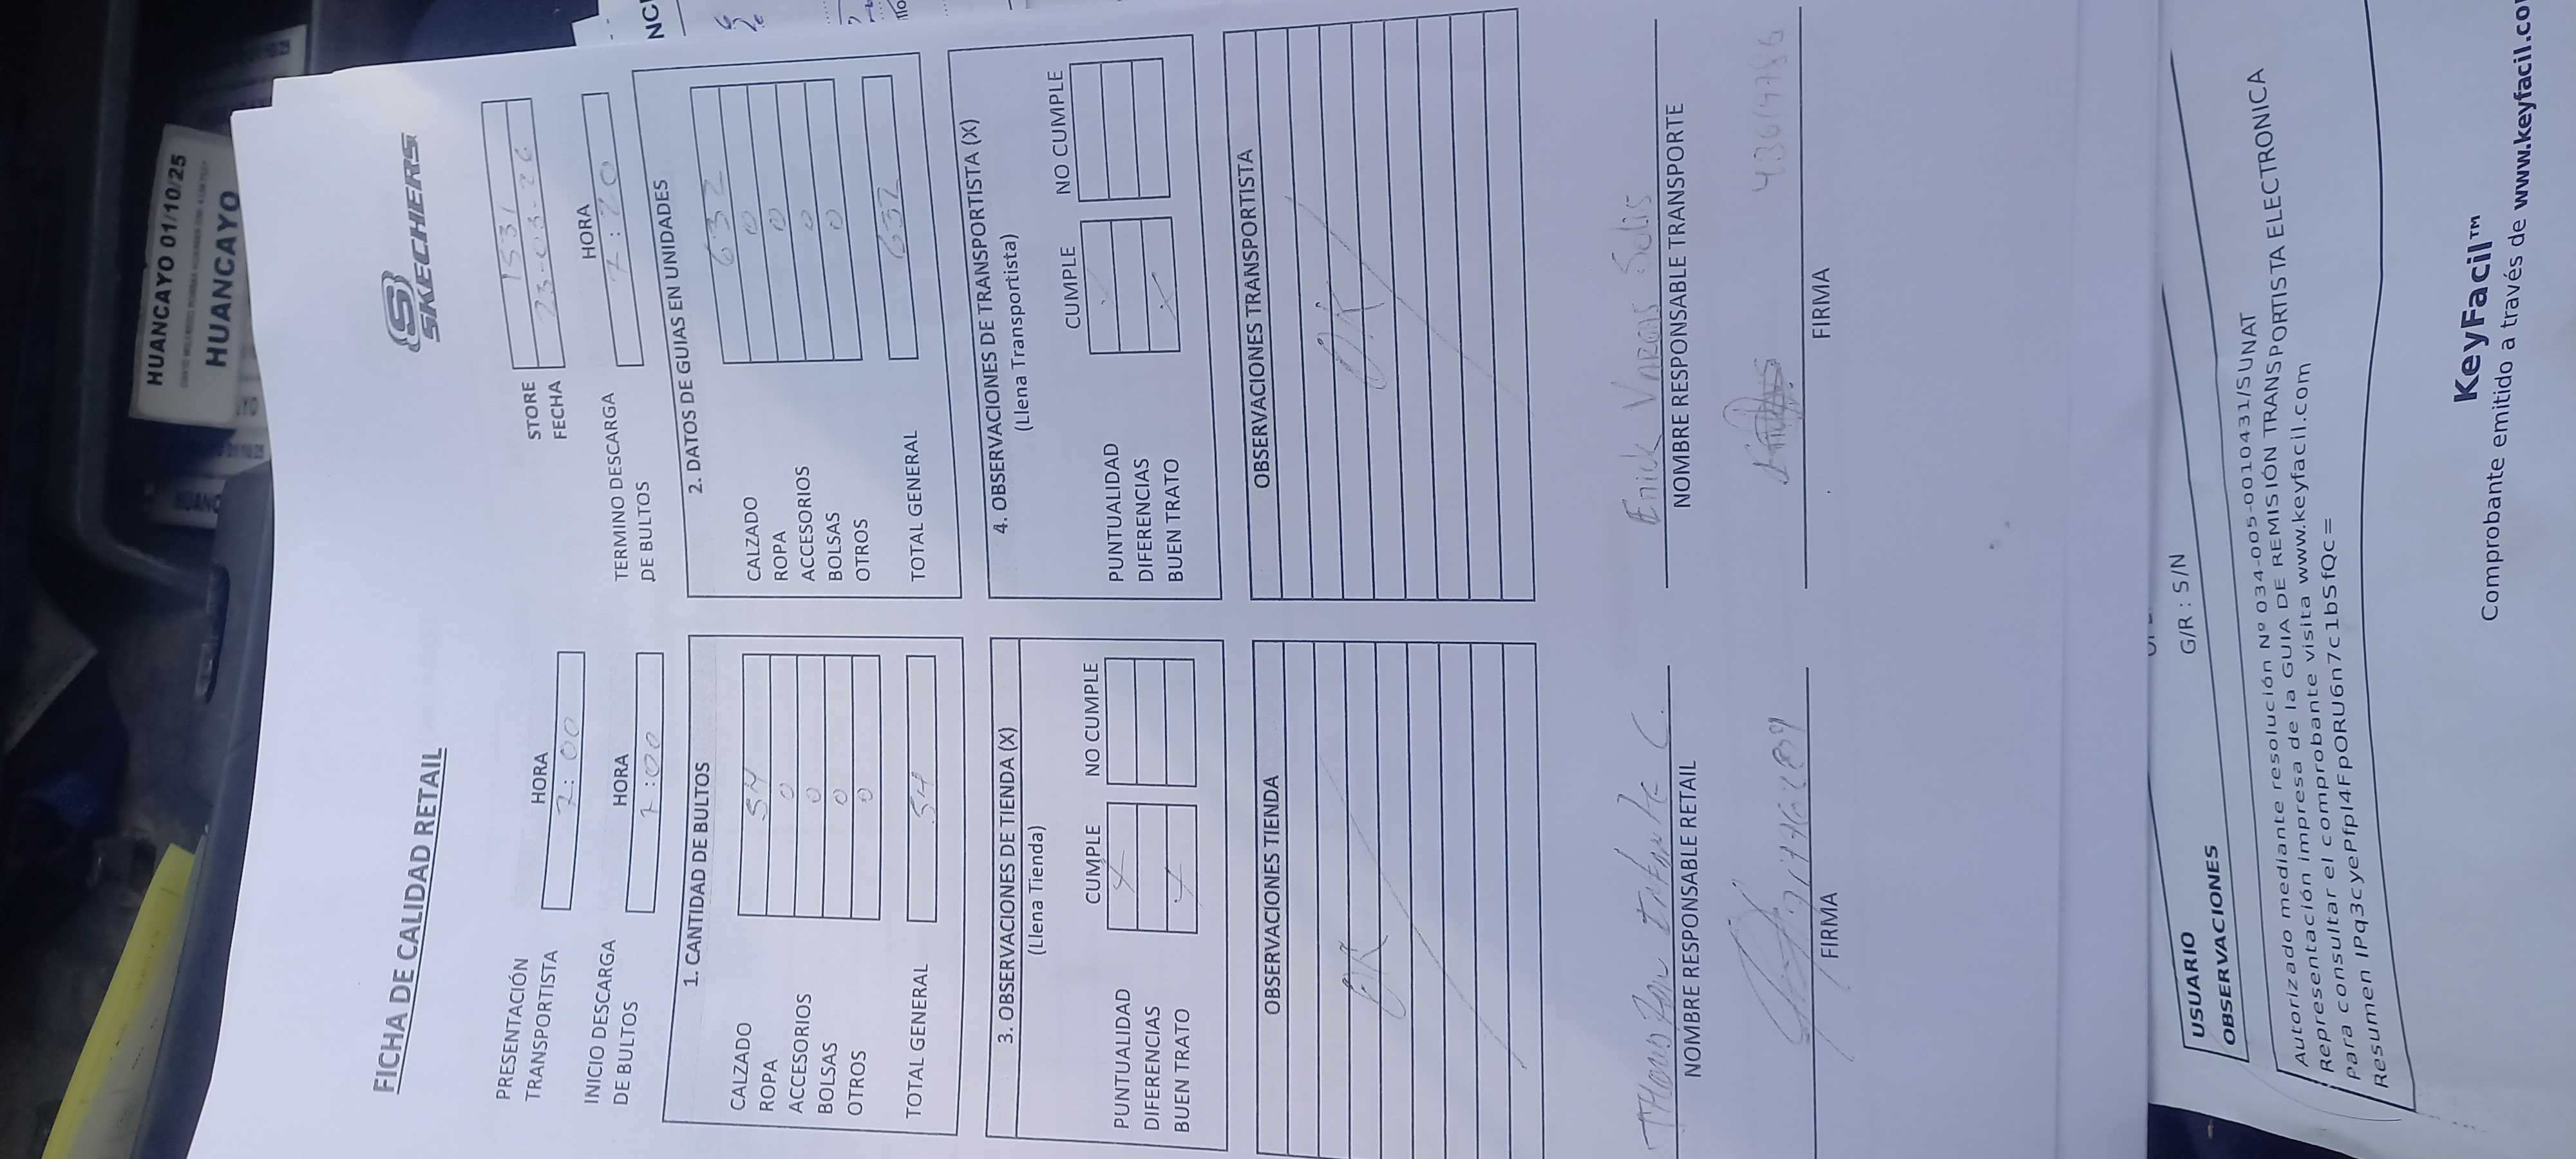 HUANCAYO 01/10/25
HUANCAYO
SKECHERS
FICHA DE CALIDAD RETAIL
STORE 1531
FECHA 23-03-26
PRESENTACIÓN
TRANSPORTISTA
HORA
7:00
INICIO DESCARGA
DE BULTOS
HORA
7:00
TERMINO DESCARGA
DE BULTOS
HORA
7:20
1. CANTIDAD DE BULTOS
CALZADO 54
ROPA 0
ACCESORIOS 0
BOLSAS 0
OTROS 0
TOTAL GENERAL 54
2. DATOS DE GUIAS EN UNIDADES
CALZADO 632
ROPA 0
ACCESORIOS 0
BOLSAS 0
OTROS 0
TOTAL GENERAL 632
3. OBSERVACIONES DE TIENDA (X)
(Llena Tienda)
CUMPLE NO CUMPLE
PUNTUALIDAD X
DIFERENCIAS
BUEN TRATO X
4. OBSERVACIONES DE TRANSPORTISTA (X)
(Llena Transportista)
CUMPLE NO CUMPLE
PUNTUALIDAD
DIFERENCIAS
BUEN TRATO X
OBSERVACIONES TIENDA
OK
OBSERVACIONES TRANSPORTISTA
OK
NOMBRE RESPONSABLE RETAIL
Erick Vargas Solis
NOMBRE RESPONSABLE TRANSPORTE
FIRMA
FIRMA
USUARIO
OBSERVACIONES
G/R : S/N
Autorizado mediante resolución Nº 034-005-0010431/SUNAT
Representación impresa de la GUIA DE REMISIÓN TRANSPORTISTA ELECTRONICA
Para consultar el comprobante visita www.keyfacil.com
KeyFacil™
Comprobante emitido a través de www.keyfacil.co